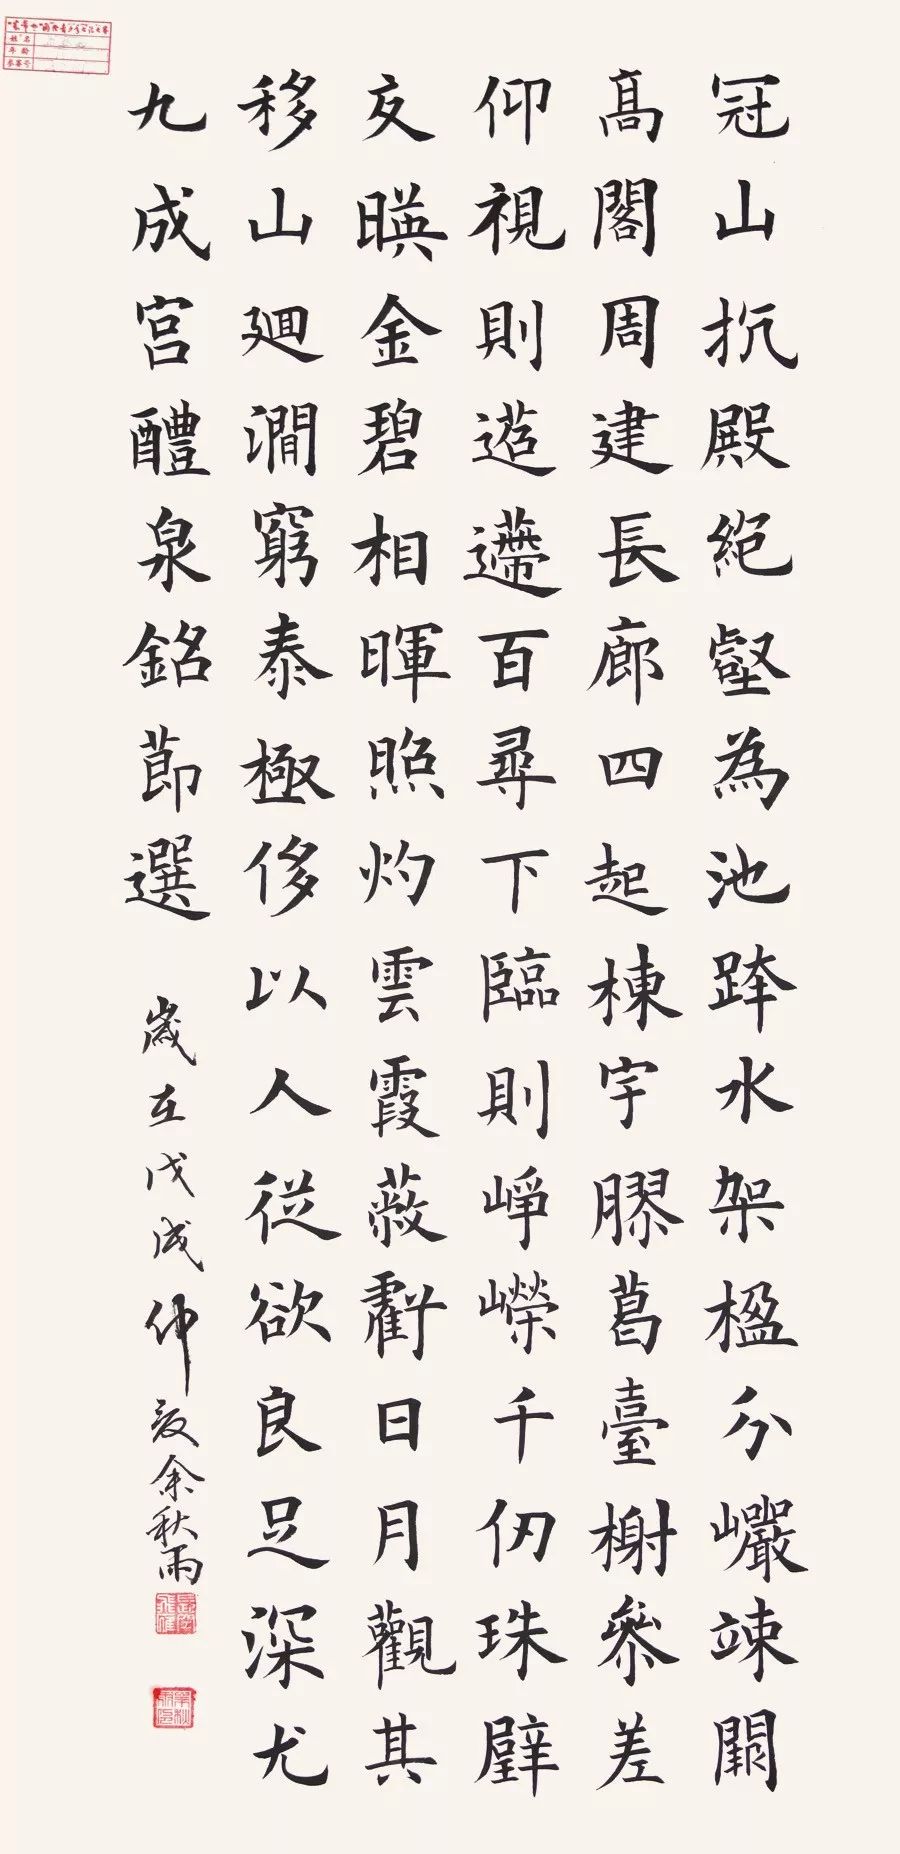 冠山抗殿絕壑為池跨水架楹分巖竦闕
髙閣周建長廊四起棟宇膠葛臺榭參差
仰視則迢遰百尋下臨則崢嶸千仞珠璧
交暎金碧相暉照灼雲霞蔽虧日月觀其
移山廻澗窮泰極侈以人從欲良足深尤
九成宮醴泉銘節選 歲在戊戌仲夏余秋雨
姓名
年龄
参赛号